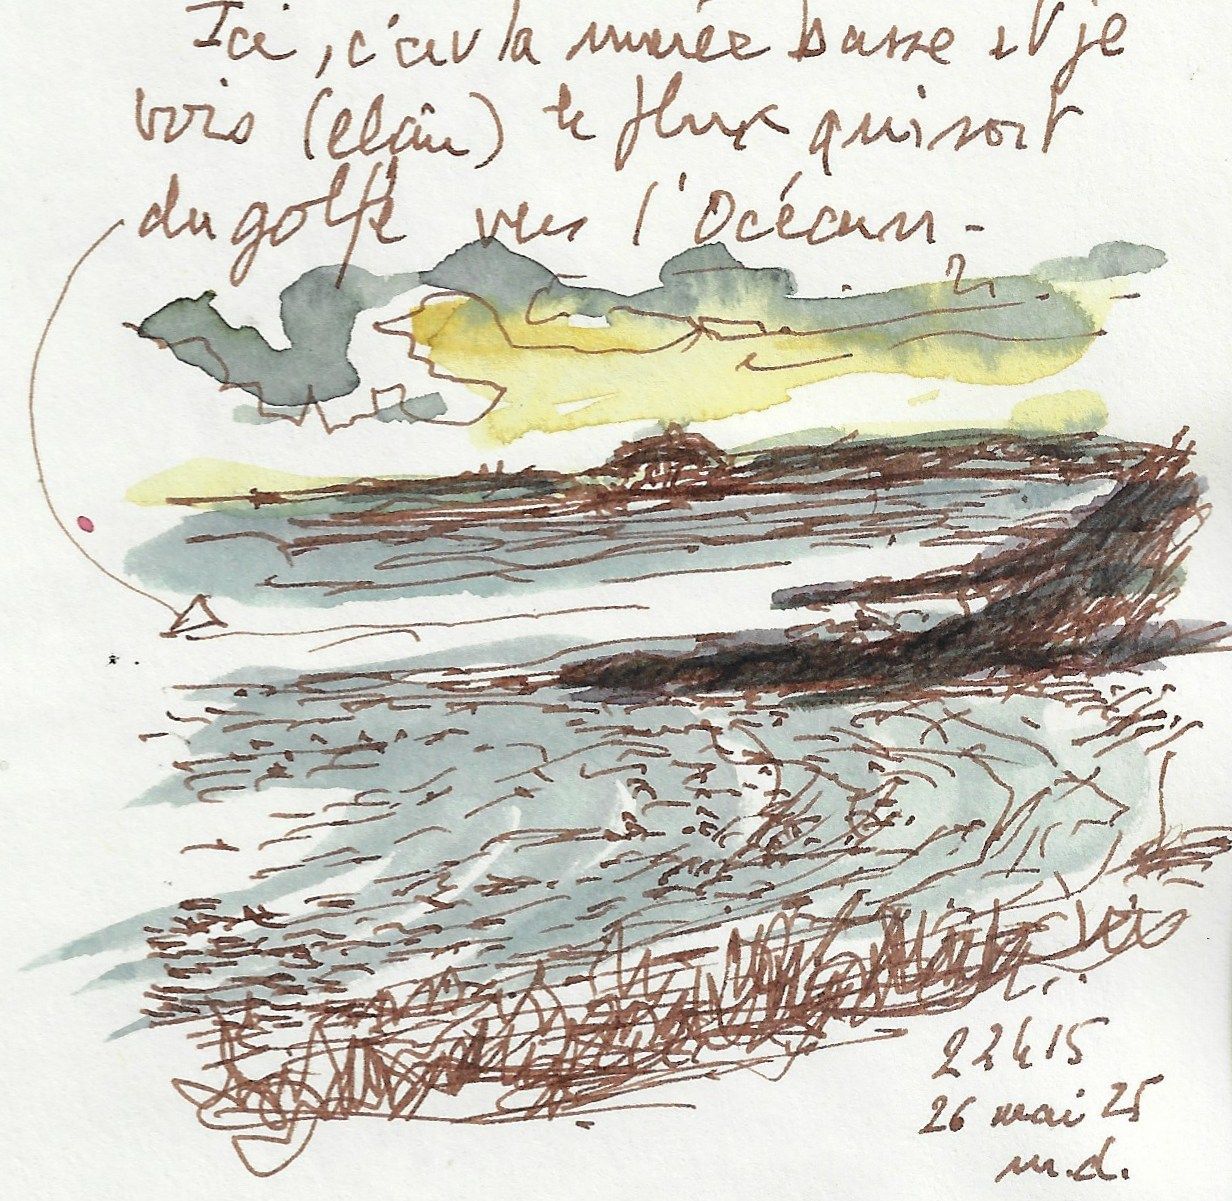 Ici, c'est la marée basse et je
vois (clair) le flux qui sort
du golfe vers l'Océan.
22h15
26 mai 25
m.d.